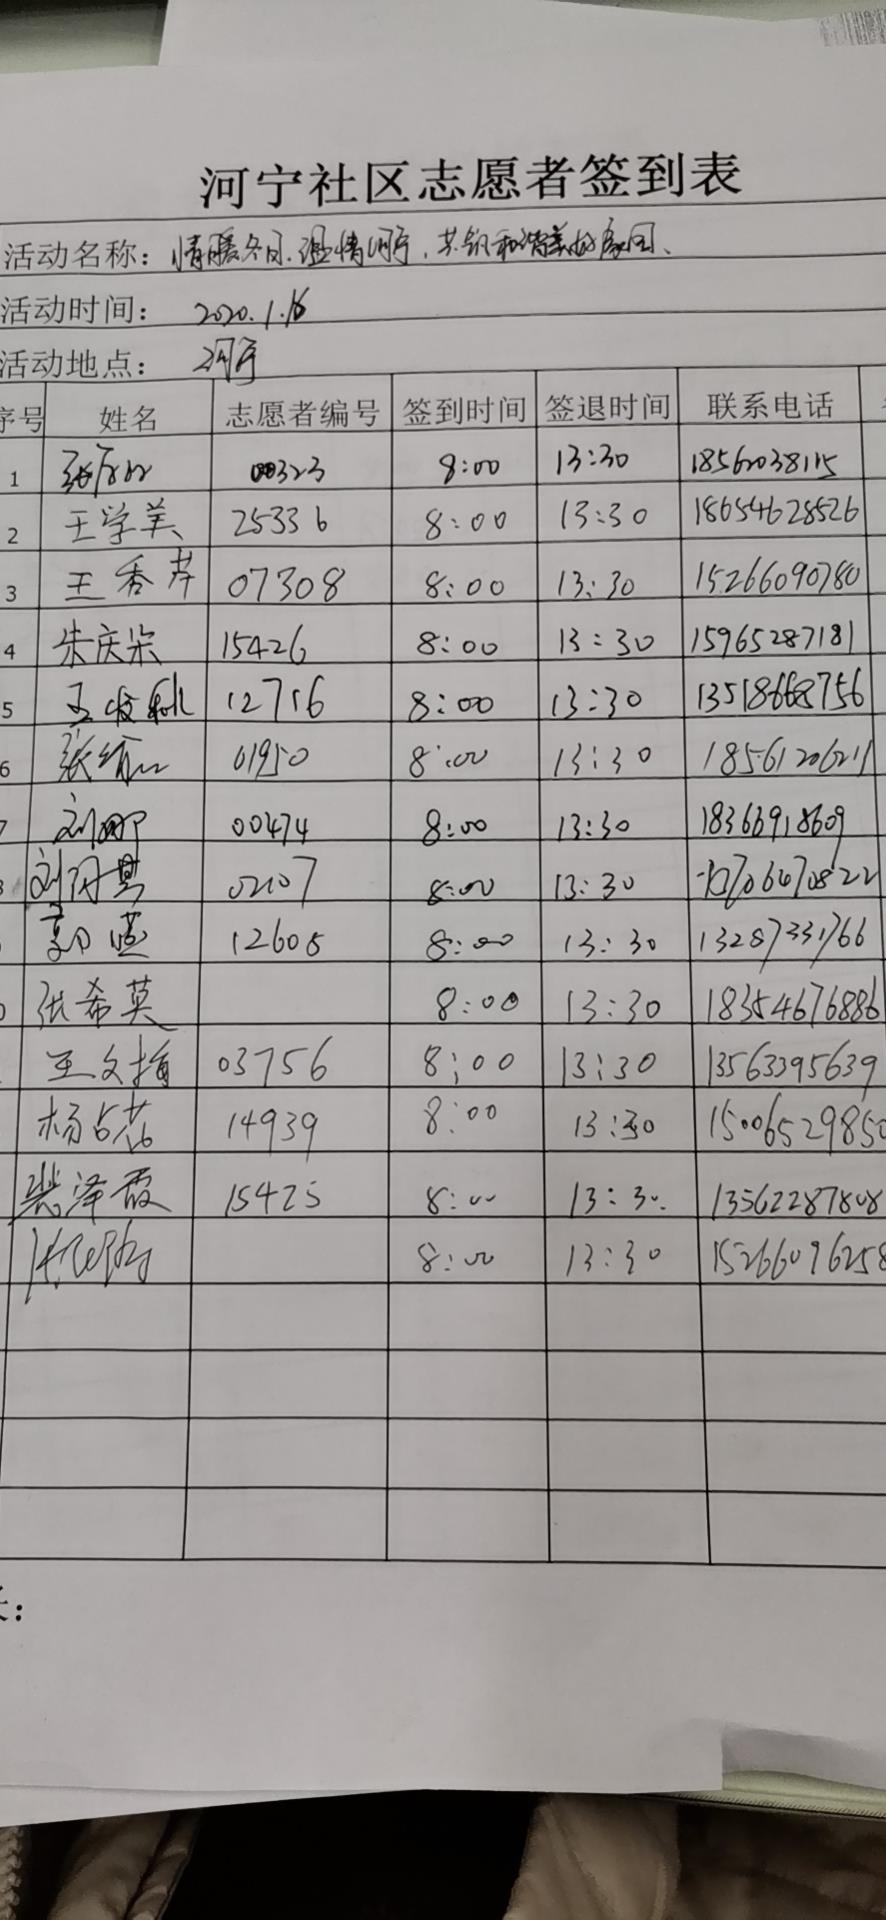 河宁社区志愿者签到表
活动名称：情暖冬日.温情河宁，共筑和谐美好家园、
活动时间：2020.1.16
活动地点：河宁
序号 姓名 志愿者编号 签到时间 签退时间 联系电话
1 00323 8:00 13:30
2 王学美 25336 8:00 13:30 18654628526
3 王秀芹 07308 8:00 13:30 15266090780
4 朱庆荣 15426 8:00 13:30 15965287181
5 12716 8:00 13:30 13518668756
6 01950 8:00 13:30
7 刘娜 00474 8:00 13:30 18366918609
02107 8:00 13:30
郭燕 12605 8:00 13:30 13287331766
张希英 8:00 13:30 18354676886
王文梅 03756 8:00 13:30 13563395639
杨占花 14939 8:00 13:30 15006529850
裴泽霞 15425 8:00 13:30 13562287808
8:00 13:30 15266096258
长：